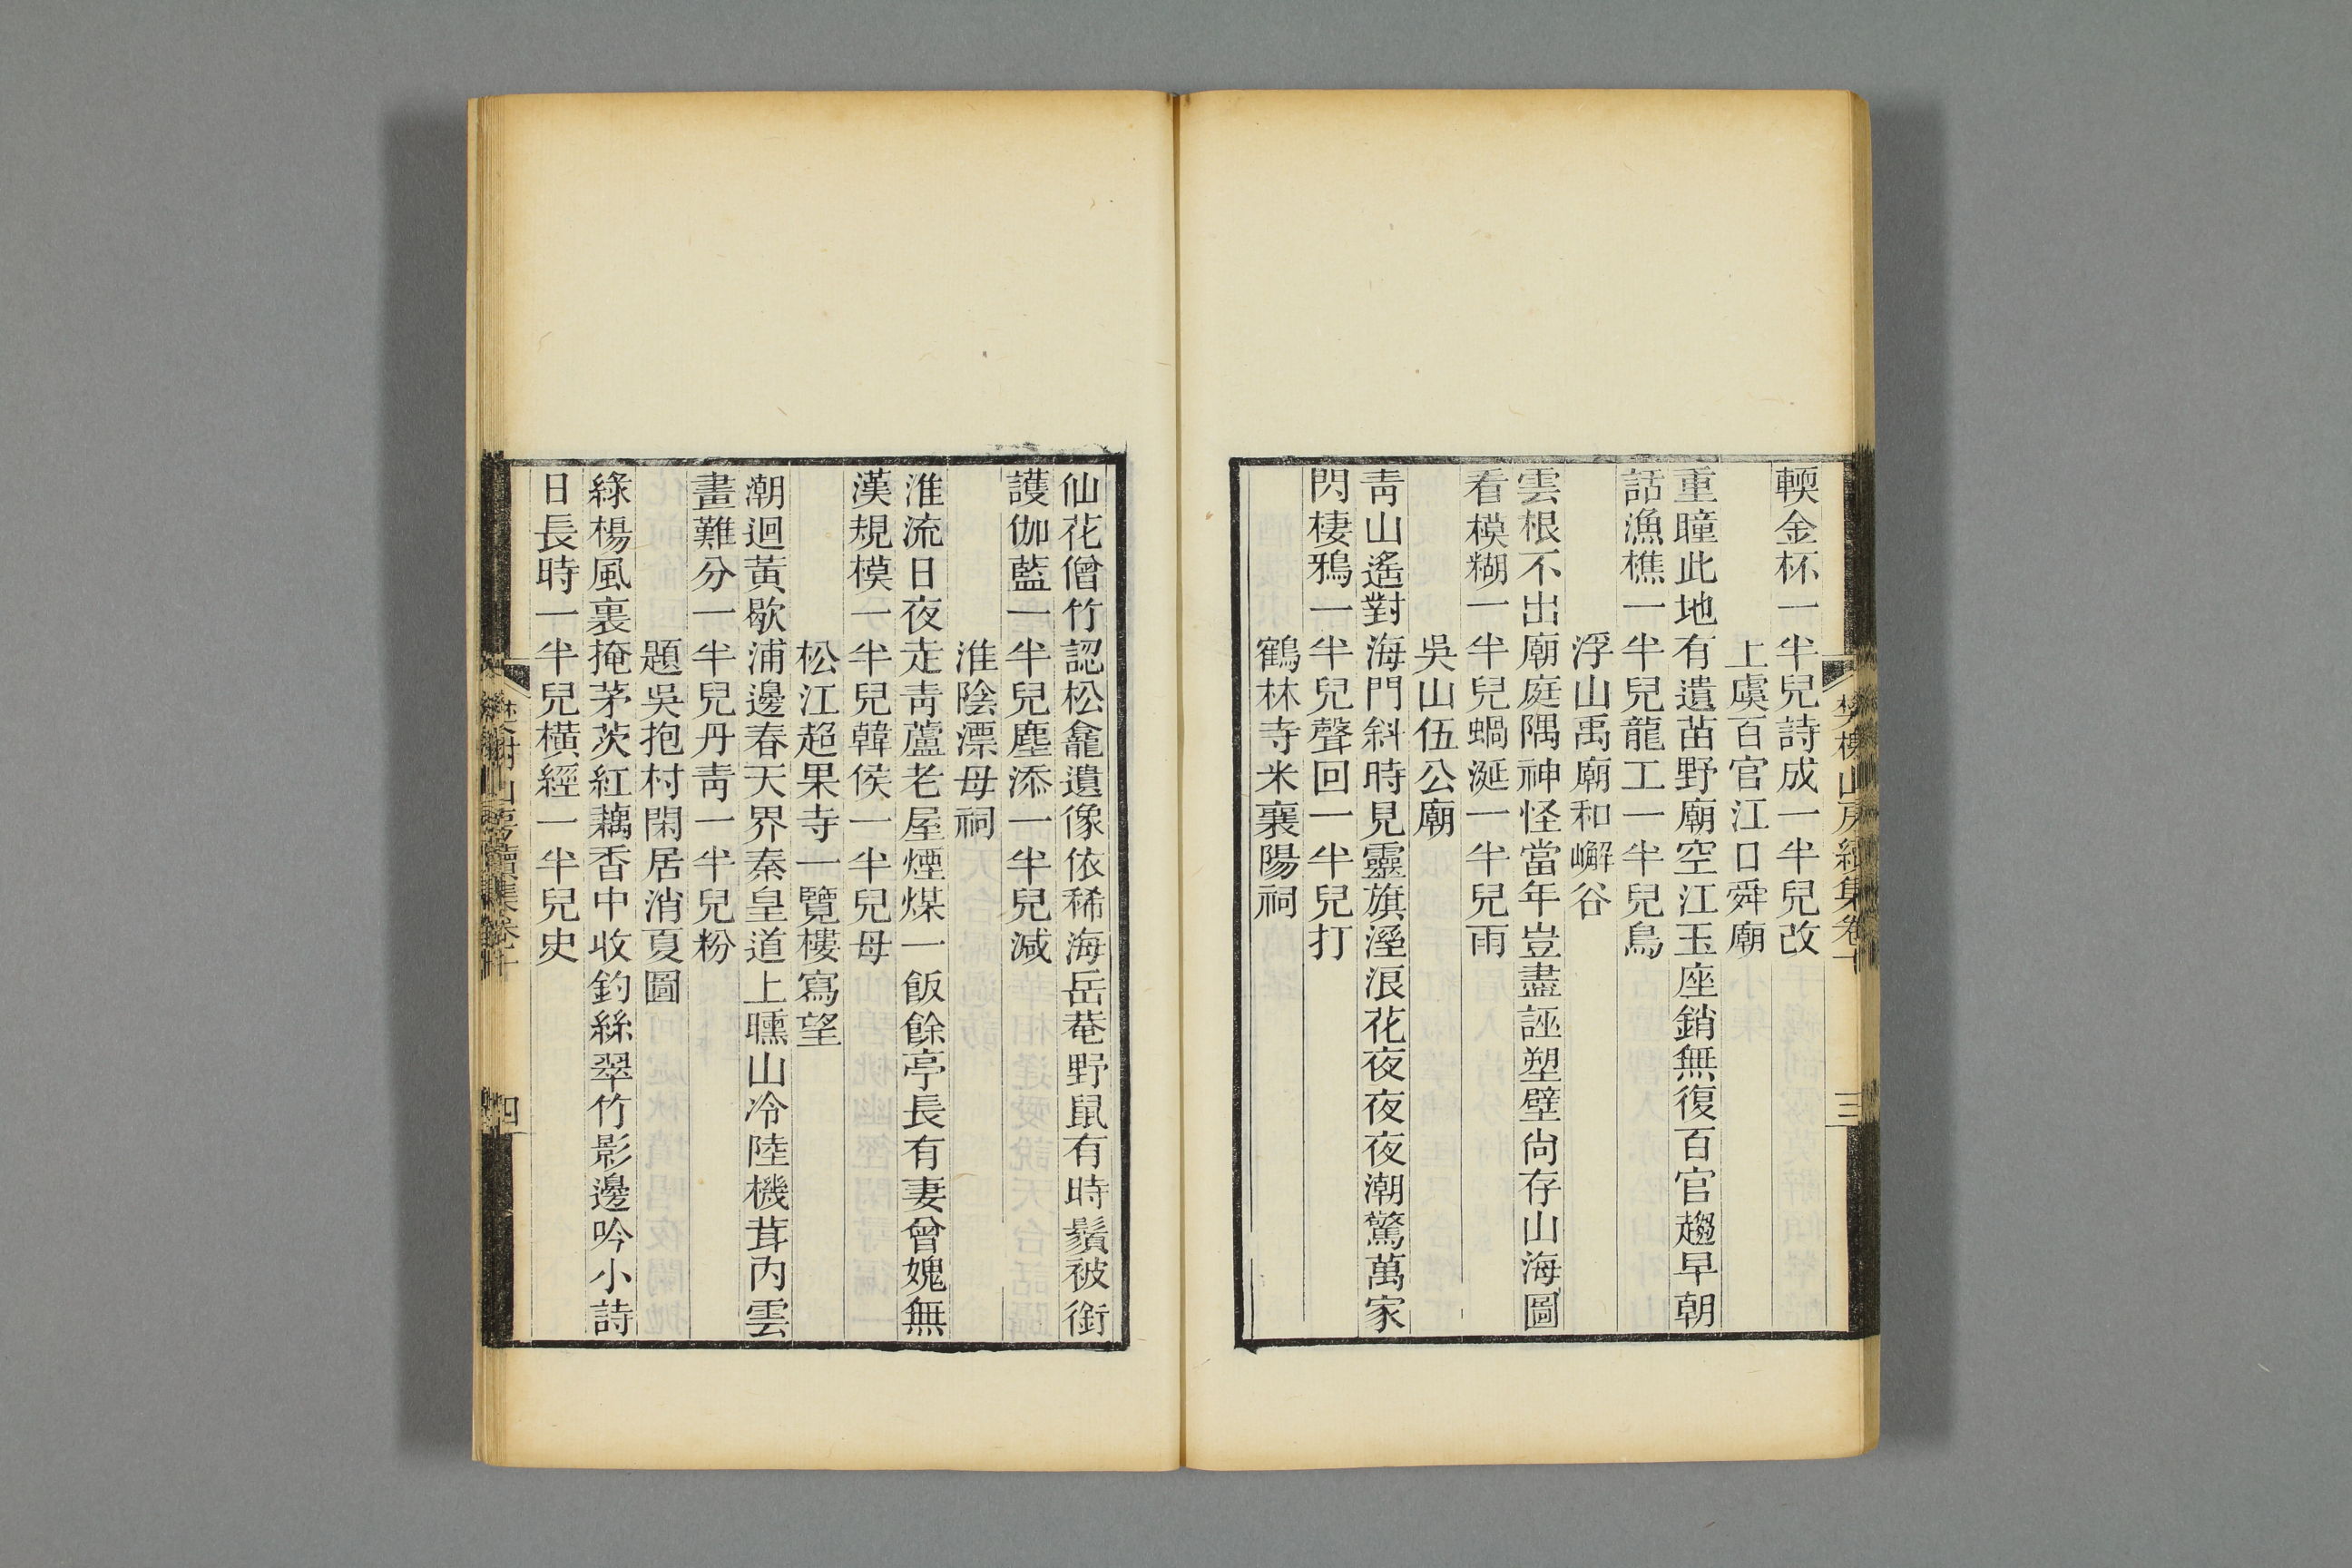 輭金杯一半兒詩成一半兒改
上虞百官江口舜廟
重瞳此地有遺苗野廟空江玉座銷無復百官趨早朝
話漁樵一半兒龍工一半兒鳥
浮山禹廟和嶰谷
雲根不出廟庭隅神怪當年豈盡誣塑壁尙存山海圖
看模糊一半兒蝸涎一半兒雨
吳山伍公廟
靑山遙對海門斜時見靈旗溼浪花夜夜夜潮驚萬家
閃棲鴉一半兒聲回一半兒打
鶴林寺米襄陽祠
三
仙花僧竹認松龕遺像依稀海岳菴野鼠有時鬚被銜
護伽藍一半兒塵添一半兒減
淮陰漂母祠
淮流日夜走靑蘆老屋煙煤一飯餘亭長有妻曾媿無
漢規模一半兒韓侯一半兒母
松江超果寺一覽樓寫望
潮迴黃歇浦邊春天界秦皇道上曛山冷陸機茸內雲
畫難分一半兒丹靑一半兒粉
題吳抱村閑居消夏圖
綠楊風裏掩茅茨紅藕香中收釣絲翠竹影邊吟小詩
日長時一半兒橫經一半兒史
樊榭山房續集卷十
四